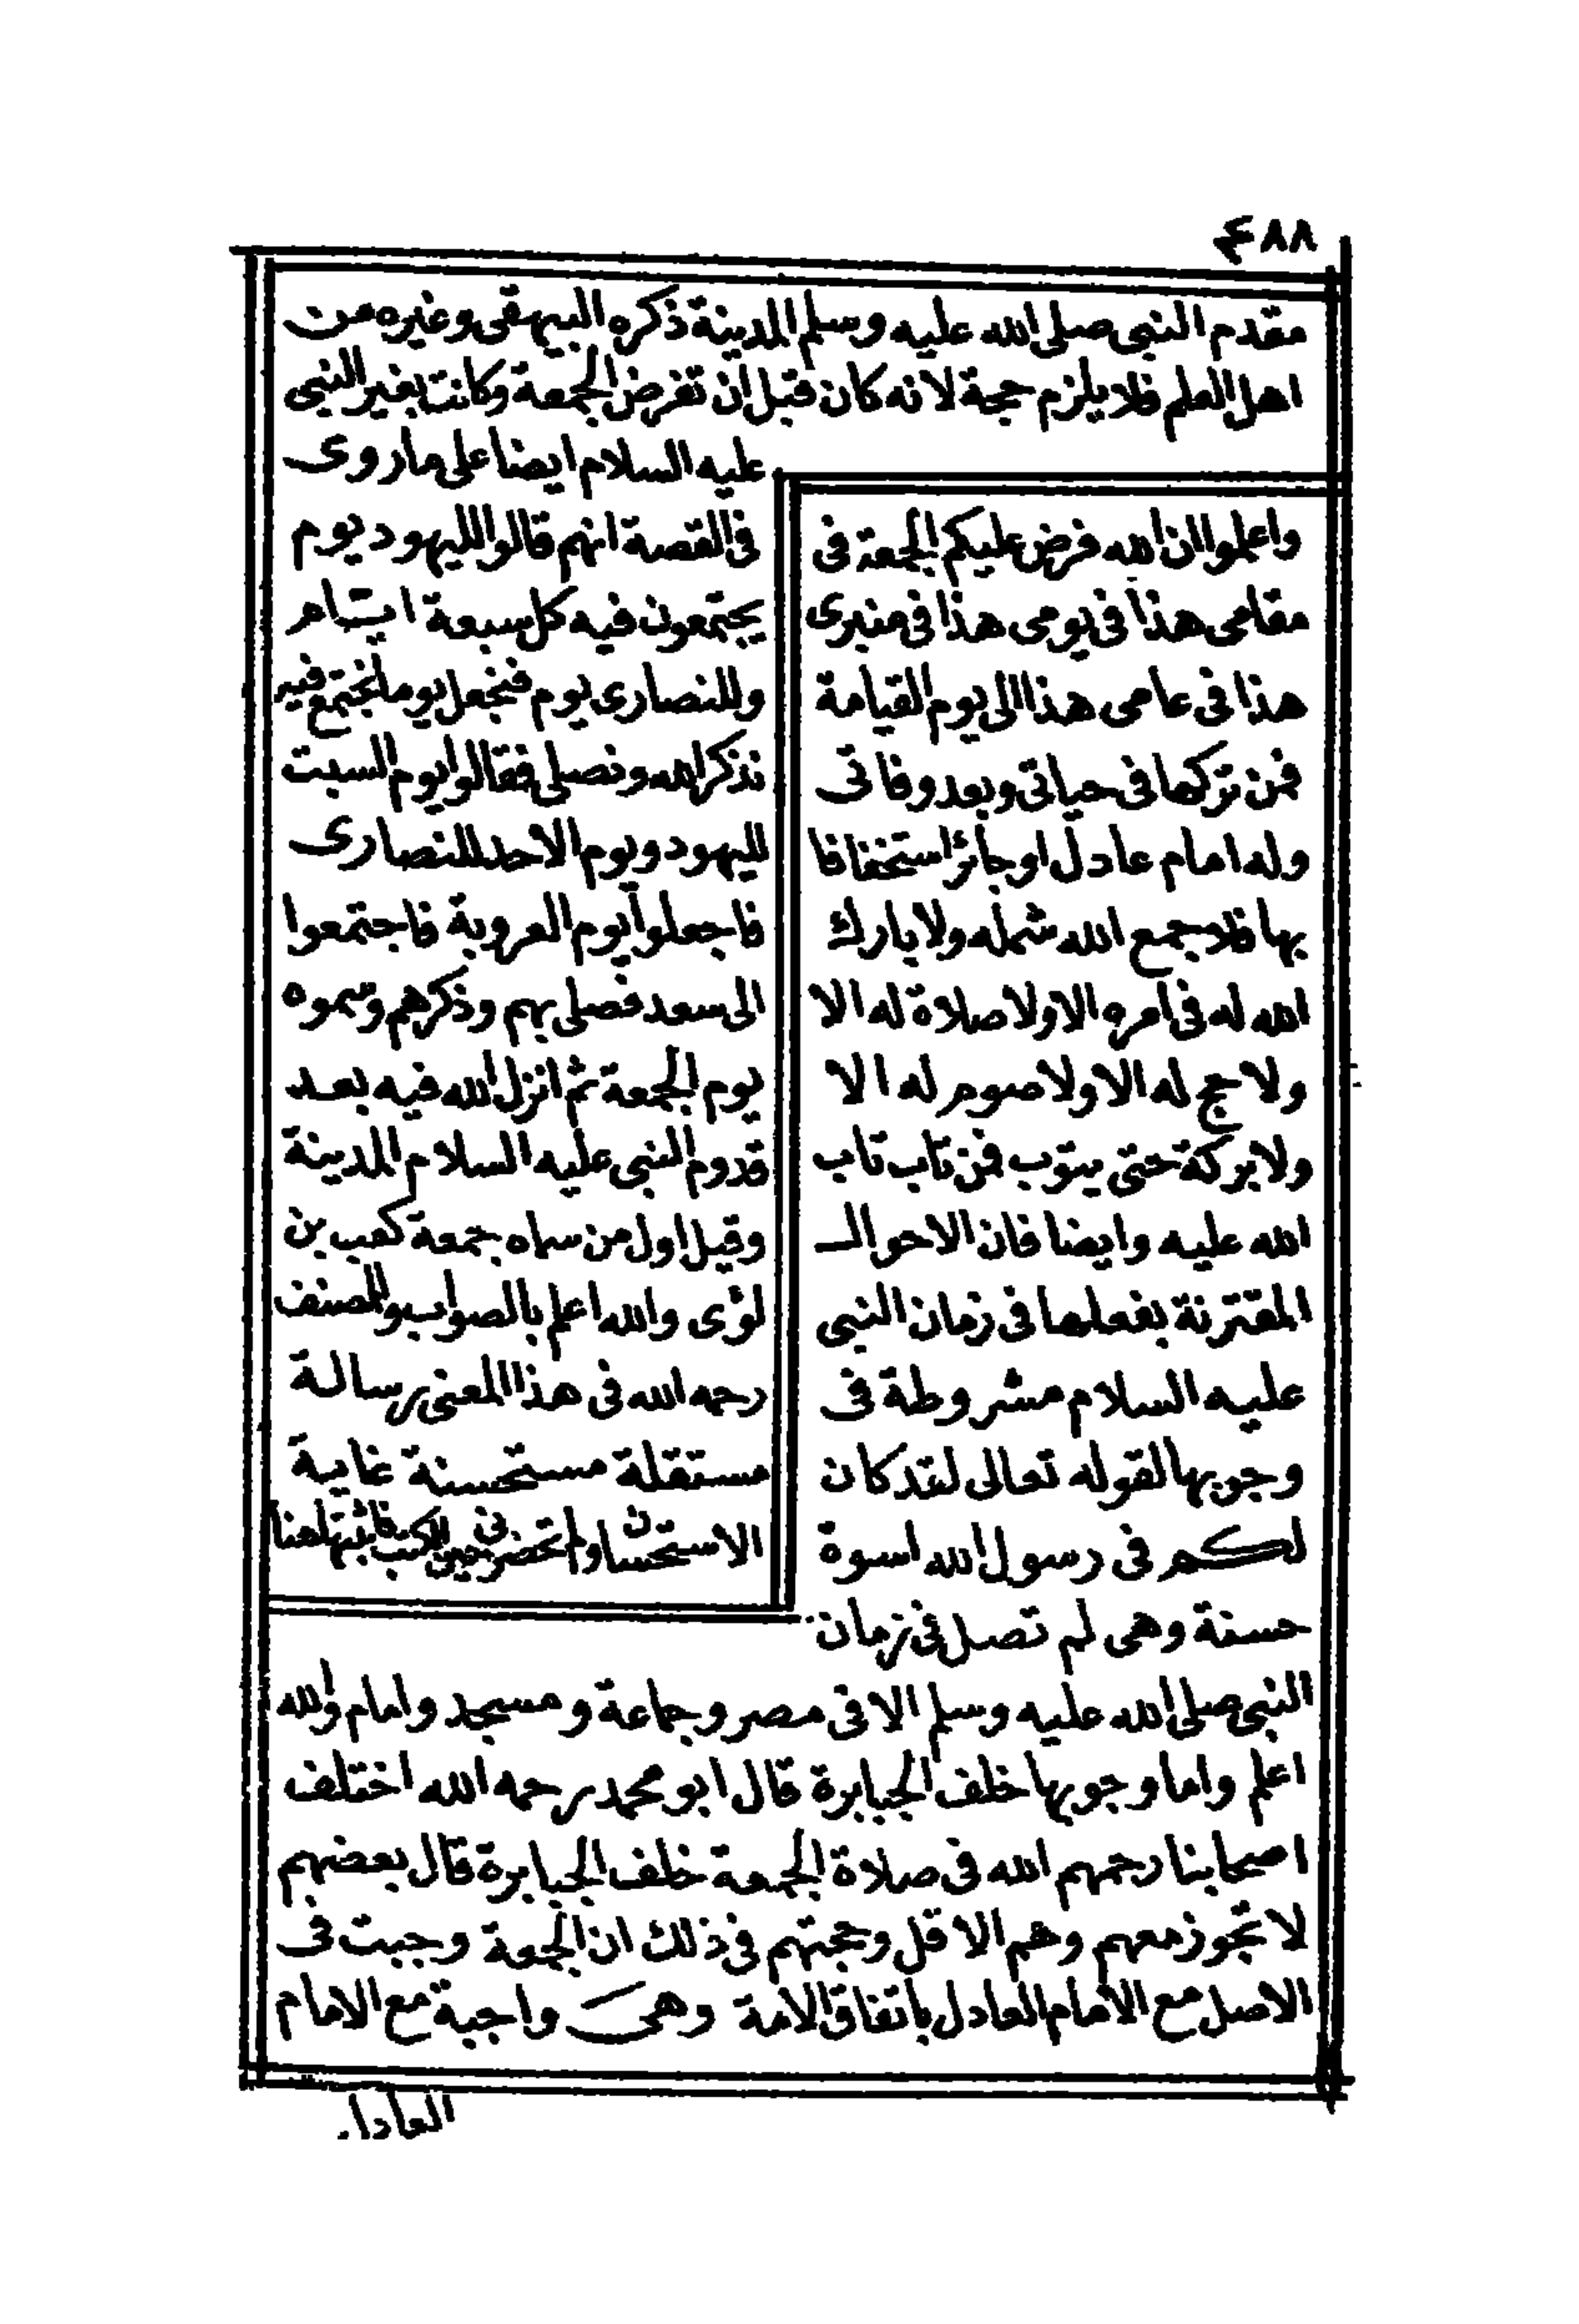 ٤٨٨
مقدم النبى صلى الله عليه وسلم المدينة ذكره البيهقى وغيره من
اهل العلم فلا يلزم حجة لانه كان قبل ان تفرض الجمعة وكانت بغير النبى
عليه السلام ايضا على ما روى
فى القصة انهم قالوا لليهود يوم
يجتمعون فيه كل سبعة ايام
وللنصارى يوم فنجعل يوما نجتمع فيه
نذكر الله ونصلى فقالوا يوم السبت
لليهود ويوم الاحد للنصارى
فاجعلوا يوم العروبة فاجتمعوا
الى سعد فصلى بهم وذكرهم وسموه
يوم الجمعة ثم انزل الله فيه بعد
قدوم النبى عليه السلام المدينة
وقيل اول من سماه جمعة كعب بن
لؤى والله اعلم بالصواب والمصنف
رحمه الله فى هذا المعنى رسالة
مستقلة مستحسنة غاية
الاستحسان
واعلموا ان الله فرض عليكم الجمعة فى
مقامى هذا فى يومى هذا فى منبرى
هذا فى عامى هذا الى يوم القيامة
فمن تركها فى حياتى وبعد وفاتى
وله امام عادل او جائر استخفافا
بها فلا جمع الله شمله ولا بارك
الله له فى امره الا ولا صلاة له الا
ولا حج له الا ولا صوم له الا
ولا بركة حتى يتوب فمن تاب تاب
الله عليه وايضا فان الاحوال
المقترنة بفعلها فى زمان النبى
عليه السلام مشروطة فى
وجوبها لقوله تعالى لقد كان
لكم فى رسول الله اسوة
حسنة وهى لم تصل فى زمان
النبى صلى الله عليه وسلم الا فى مصر وجماعة ومسجد وامام والله
اعلم واما وجوبها خلف الجبابرة قال ابو محمد رحمه الله اختلف
اصحابنا رحمهم الله فى صلاة الجمعة خلف الجبابرة قال بعضهم
لا تجوز معهم وهم الاقل وحجتهم فى ذلك ان الجمعة وجبت فى
الاصل مع الامام العادل باتفاق الامة وهى واجبة مع الامام
العادل